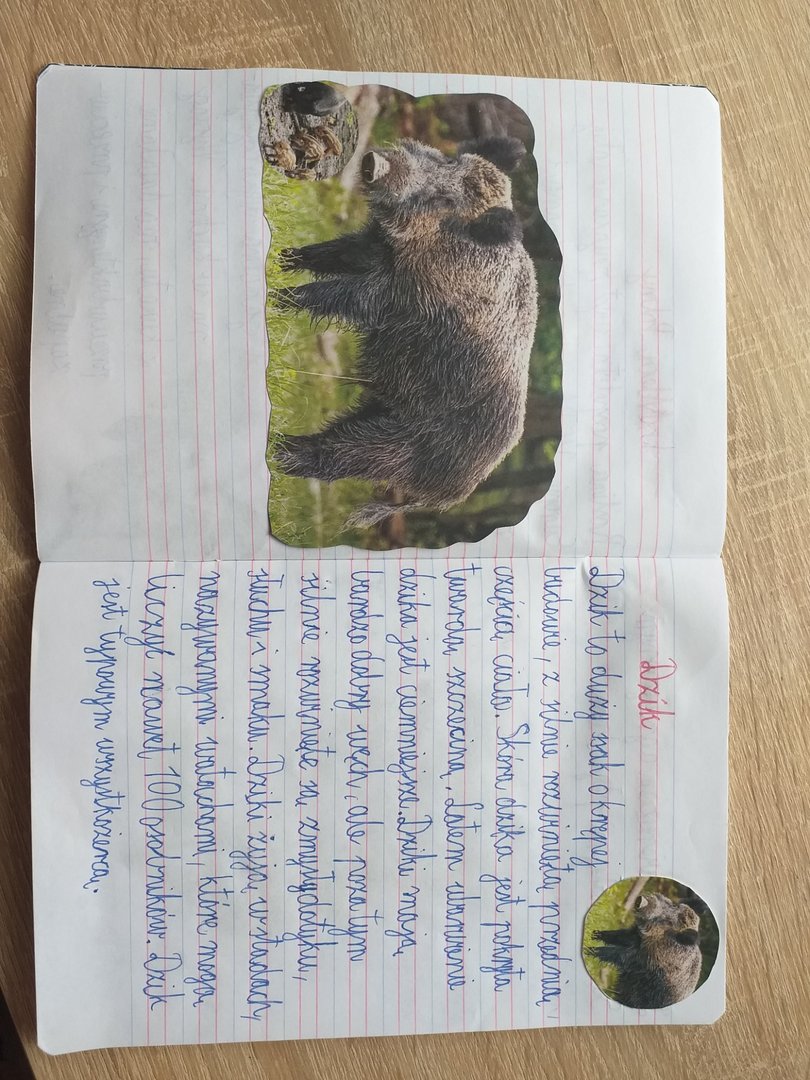 Dzik
Dzik to duży ssak o krępej
budowie, z silnie rozwiniętą przednią
częścią ciała. Skóra dzika jest pokryta
twardą szczeciną. Latem ubarwienie
dzika jest ciemniejsze. Dziki mają
bardzo dobry węch, ale poza tym
silnie rozwinięte są zmysły dotyku,
słuchu i smaku. Dziki żyją w stadach,
nazywanymi watahami, które mogą
liczyć nawet 100 osobników. Dzik
jest typowym wszystkożercą.